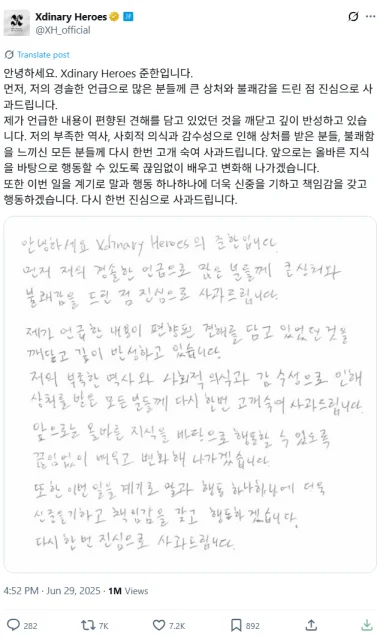 Xdinary Heroes
@XH_official
Translate post
안녕하세요. Xdinary Heroes 준한입니다.
먼저, 저의 경솔한 언급으로 많은 분들께 큰 상처와 불쾌감을 드린 점 진심으로 사
과드립니다.
제가 언급한 내용이 편향된 견해를 담고 있었던 것을 깨닫고 깊이 반성하고 있습
니다. 저의 부족한 역사, 사회적 의식과 감수성으로 인해 상처를 받은 분들, 불쾌함
을 느끼신 모든 분들께 다시 한번 고개 숙여 사과드립니다. 앞으로는 올바른 지식
을 바탕으로 행동할 수 있도록 끊임없이 배우고 변화해 나가겠습니다.
또한 이번 일을 계기로 말과 행동 하나하나에 더욱 신중을 기하고 책임감을 갖고
행동하겠습니다. 다시 한번 진심으로 사과드립니다.
안녕하세요 Xdinary Heroes의 준한입니다.
먼저 저의 경솔한 언급으로 많은 분들께 큰 상처와
불쾌감을 드린 점 진심으로 사과드립니다.
제가 언급한 내용이 편향된 견해를 담고 있었던 것을
깨닫고 깊이 반성하고 있습니다.
저의 부족한 역사와 사회적 의식과 감수성으로 인해
상처를 받은 모든분들께 다시 한번 고개숙여 사과드립니다.
앞으로는 올바른 지식을 바탕으로 행동할 수 있도록
끊임없이 배우고 변화해 나가겠습니다.
또한 이번 일을 계기로 말과 행동 하나하나에 더욱
신중을기하고 책임감을 갖고 행동하겠습니다.
다시 한번 진심으로 사과드립니다.
4:52 PM · Jun 29, 2025 · 1M Views
282 7K 7.2K 892